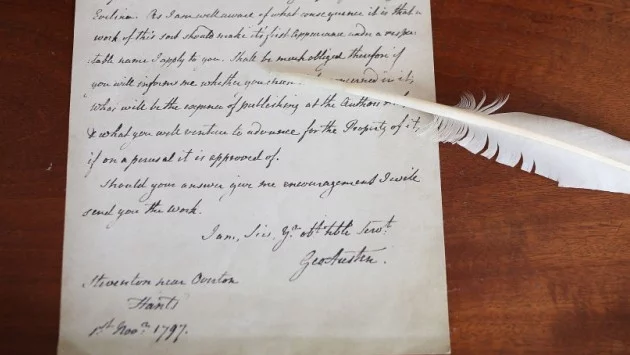 Evelina. As I am well aware of what consequence it is that a
work of this sort should make it's first appearance under a respec-
table name I apply to you. Shall be much obliged therefore if
you will inform me whether you concerned in it;
what will be the expence of publishing at the Author's
& what you will venture to advance for the Property of it,
if on a perusal it is approved of.
Should your answer give me encouragement I will
send you the work.
I am, Sir, Yr. obt. hble Servt.
Geo Austen.
Steventon near Overton
Hants
1st Novr. 1797.